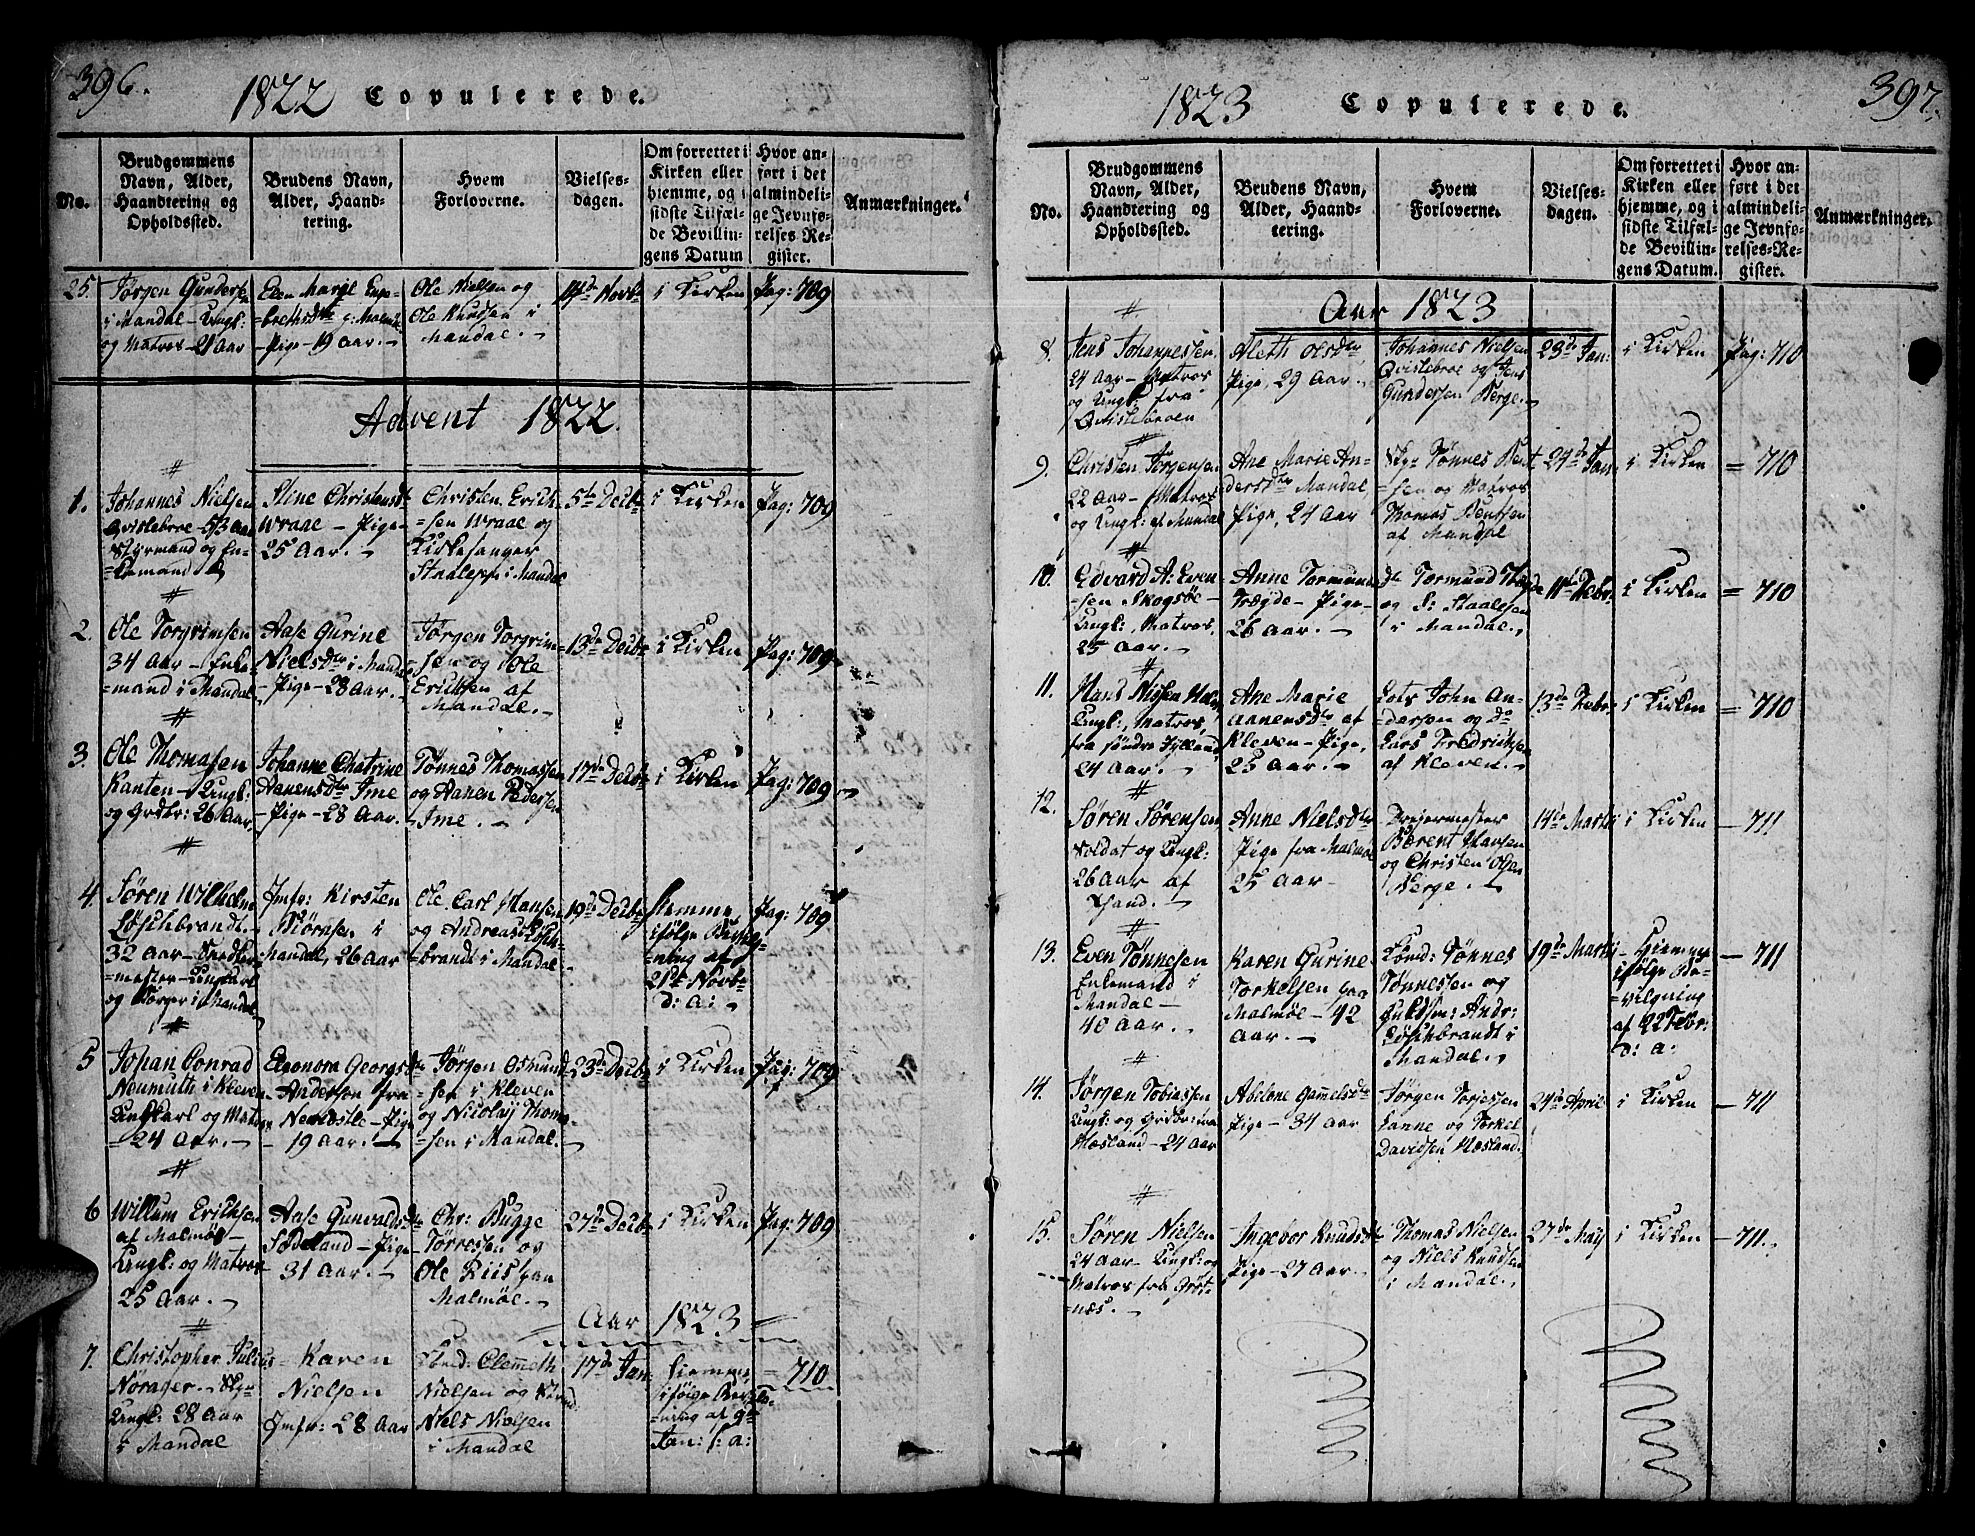 396.
1822 Copulerede.
No.
Brudgommens
Navn, Alder,
Haandtering og
Opholdssted.
Brudens Navn,
Alder, Haand-
tering.
Hvem
Forloverne.
Vielses-
dagen.
Om forrettet i
Kirken eller
hjemme, og i
sidste Tilfæl-
de Bevillin-
gens Datum
Hvor an-
ført i det
almindeli-
ge Jevnfø-
relses Re-
gister.
Anmærkninger.
25.
Jørgen Gunders
i Mandal - Ungk:
og Matros - 21 Aar
Elen Margt Enge-
=brethsdtr
Pige - 19 Aar. -
Ole Nielsen og
Ole Knudsen i
Mandal. -
14de Novbr
i Kirken
Pag: 709
Advent 1822.
1.
Johannes Nielsen
Qvislebroe - 53 Aar
Styrmand og En-
=kemand
Stine Christensd
Wraae - Pige
25 Aar. -
Christen Erich-
=sen Wraae og
Kirkesanger
i Mandal
5te Decbr
i Kirken
Pag: 709
2.
Ole Torgrimsen
34 Aar - Enke-
=mand i Mandal
Aase Gurine
Nielsdtr i Mandal
- Pige - 28 Aar. -
Jørgen Torgrim-
=sen og Ole
Erichsen af
Mandal. -
13de Decbr
i Kirken
Pag: 709
3.
Ole Thomasen
Kanten - Ungk:
og Grdbr: 26 Aar
Johanne Chatrine
Aanensdtr Ime
- Pige - 28 Aar.
Tønnes Thomassen
og Aanen Pedersen
- Ime. -
17de Decbr
i Kirken
Pag: 709
4.
Søren Wilhelm
Løschbrandt
32 Aar
=mester - Ungkarl
og Borger i Mandal
Jmfr: Kirsten
Biørnsen i
Mandal, 26 Aar
Ole Carl Hansen
og Andreas Løsch-
=brandt i Mandal
19de Decbr
Hiemme,
ifølge Bevilg-
=ning af
21de Novbr
d: A: -
Pag: 709
5
Johan Conrad
Neumuth i Kleven
Ungkarl og Matros
- 24 Aar. -
Eleonora Georgsd
Andersen fra
- Pige
- 19 Aar. -
Jørgen Osmund-
=sen i Kleven
og Nicolaij Thoma-
=sen i Mandal. -
23de Decbr
i Kirken
Pag: 709
6
Willum Erichsen
af Malmøe -
Ungk: og Matros
25 Aar. -
Aase Gunvaldsd
Sødeland - Pige
31 Aar. -
Chr: Bugge
Torresen og
Ole Riis paa
Malmøe. -
27de Decbr
i Kirken
Pag: 709
Aar 1823
7.
Christopher Julius
Norager -
Ungk: 28 Aar
i Mandal
Karen
Nielsen
Jmfr: 28 Aar
Clemeth
Nielsen og
Niels Nielsen
i Mandal
17de Jan:
hiemme,
ifølge Bevil-
=ning af 9de
Jan: s: a:
= 710
397.
1823 Copulerede.
No.
Brudgommens
Navn, Alder,
Haandtering og
Opholdssted.
Brudens Navn,
Alder, Haand-
tering.
Hvem
Forloverne.
Vielses-
dagen.
Om forrettet i
Kirken eller
hjemme, og i
sidste Tilfæl-
de Bevillin-
gens Datum.
Hvor an-
ført i det
almindeli-
ge Jevnfø-
relses-Re-
gister.
Anmærkninger.
Aar 1823
8.
Jens Johannessen.
24 Aar - Matros
og Ungk: fra
Qvislebroen
Aleth Olsdtr
Pige, 29 Aar. -
Johannes Nielsen
Qvislebroe og Jens
Gundersen Berge. -
23de Jan:
i Kirken
Pag: 710
9.
Christen Jørgensen
22 Aar - Matros
og Ungk: af Mandal
Ane Marie An-
dersdtr Mandal,
Pige, 24 Aar
Tønnes Bent
=sen og Matros
Thomas Bentsen
af Mandal
24de Jan:
i Kirken
= 710
10.
Edvard A: Even
=sen Skogsøe -
Ungk:, Matros,
25 Aar. -
Anne Tormunds
Trægde - Pige -
26 Aar. -
Tormund
og S: Staalesen
i Mandal.
11de Febr.
i Kirken
= 710
11.
Hans Nissen
Ungk:, Matros,
fra søndre Jylland
24 Aar. -
Ane Marie
Aanensdtr af
Kleven - Pige,
25 Aar. -
Lots John An-
=dersen og do
Lars Fredrichsen
af Kleven. -
13de Febr:
i Kirken
= 710
12.
Søren Sørensen
Soldat og Ungk:
26 Aar af
Anne Nielsdtr
Pige fra Malmøe
25 Aar -
Dreiermester
Berent Hansen
og Christen Olsen
Berge. -
14de Martii
i Kirken
- 711
13.
Even Tønnesen
Enkemand i
Mandal -
40 Aar. -
Karen Gurine
Torkelsen paa
Malmøe - 42
Aar. -
Tønnes
Tønnesen og
Guldsm: Andr:
Løschbrandt i
Mandal. -
19de Martii
Hiemme
ifølge Be-
=vilgning
af 22 Febr:
d: a:
- 711
14.
Jørgen Tobiassen
Ungk: og Grdbr:
Hæsland - 24 Aar
Abelone Gamelsdtr
Pige - 34 Aar
Jørgen Torjesen
Lanne og Torkel
Davidsen Hæsland.
24de April
i Kirken
- 711
15.
Søren Nielsen
24 Aar - Ungk: og
Matros fra Grøs-
=næs. -
Ingebor Knudsd
Pige - 27 Aar. -
Thomas Nielsen
og Niels Knudsen
i Mandal. -
27de Maij
i Kirken
- 711.